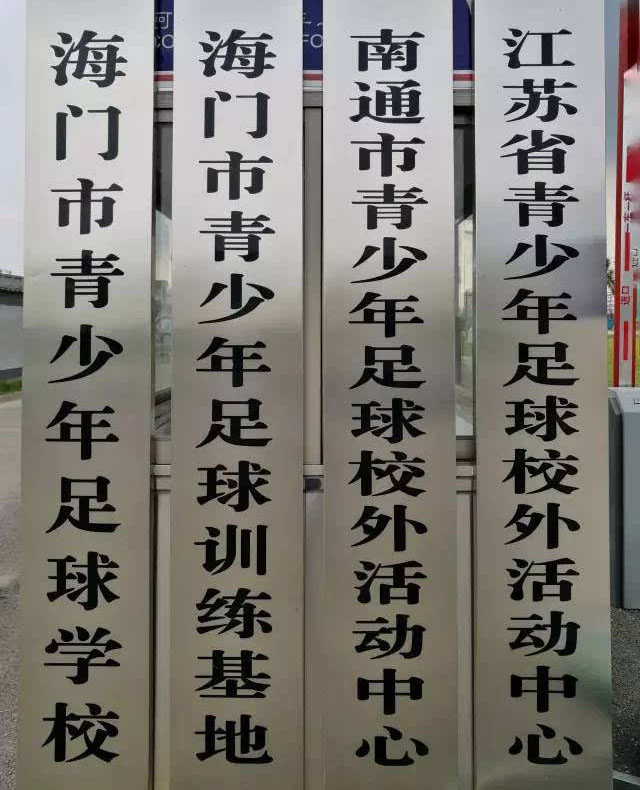 江苏省青少年足球校外活动中心
南通市青少年足球校外活动中心
海门市青少年足球训练基地
海门市青少年足球学校
进口